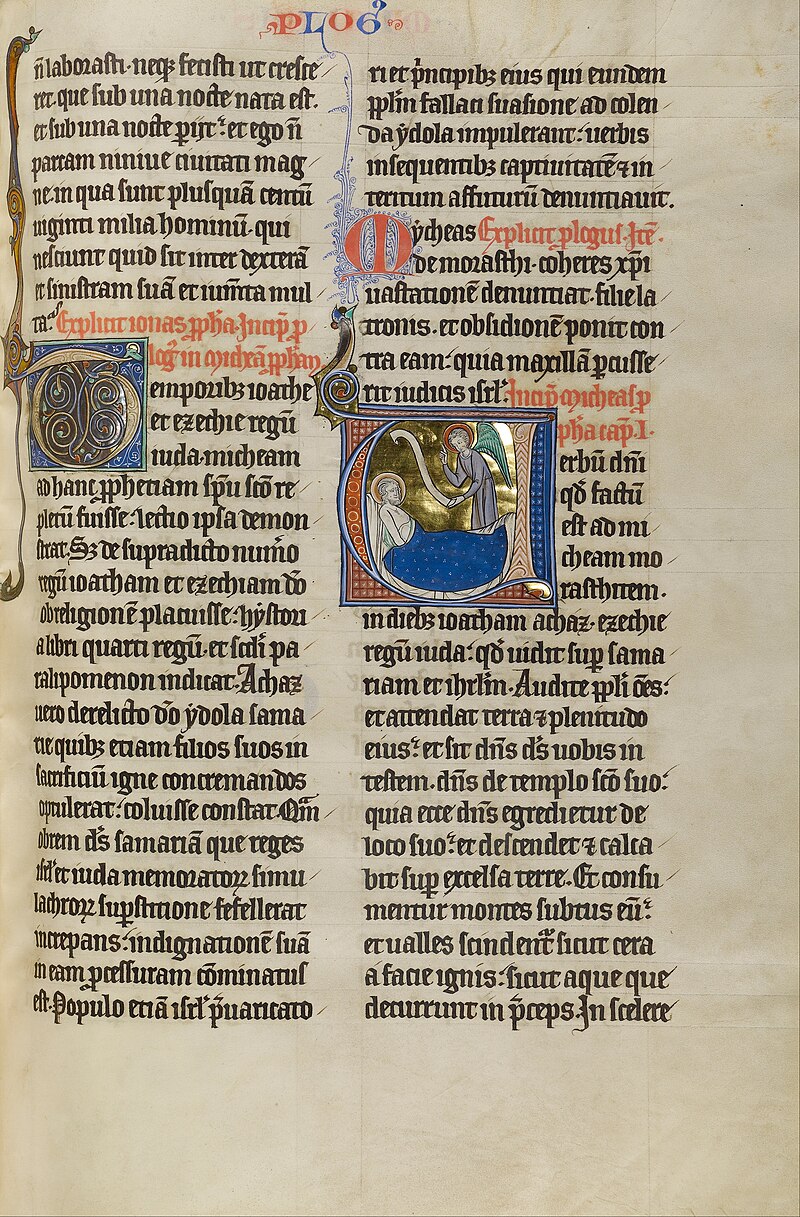 PLOG
ñ laborasti. neq; fecisti ut cresce
ret. que sub una nocte nata est.
et sub una nocte p̱ijt: et ego ñ
parcam niniue ciuitati mag
ne. in qua sunt plusquā centū
uiginti milia hominū. qui
nesciunt quid sit inter dexterā
et sinistram suā et iumta mul
ta. Explicit ionas ꝓpha. Incip̄ ꝓ
log̓ in micheā ꝓphām
Temporibꝫ ioathe
et ezechie regū
iuda. micheam
ad hanc ꝓphetiam sp̄u sc̄o re
pletū fuisse: lectio ipsa demon
strat. Sꝫ de supradicto numo
regū ioatham et ezechiam dō
ob religionē placuisse: hystori
a libri quarti regū. et scdi pa
ralipomenon indicat. Achaz
uero derelicto dō ẏdola sama
rie quibꝫ etiam filios suos in
sacrificiū igne concremandos
optulerat: coluisse constat. Qm̄
obrem ds̄ samariā que reges
isrl̓ et iuda memoratoꝝ simu
lachroꝝ suꝑstitione fefellerat
increpans: indignationē suā
in eam ꝓcessuram cōminatus
est. Populo etiā isrl̓ p̄uaricato
ri et p̓ncipibꝫ eius qui eundem
ꝓplm̄ fallaci suasione ad colen
da ẏdola impulerant: uerbis
insequentibꝫ captiuitatē ⁊ in
teritum affuturū denuntiauit.
Mẏcheas Explicit ꝓlogus. Itē.
de morasthi. coheres xp̄i
uastationē denuntiat. filie la
tronis. et obsidionē ponit con
tra eam: quia maxillā ꝑcusse
rit iudicis isrl̓. Incip̄ micheas ꝓ
pha cap̄. I.
Verbū dn̄i
qd̄ factū
est ad mi
cheam mo
rasthitem.
in diebꝫ ioatham achaz. ezechie
regū iuda: qd̄ uidit suꝑ sama
riam et ihrlm̄. Audite ꝓpli om̄s:
et attendat terra ⁊ plenitudo
eius: et sit dn̄s ds̄ uobis in
testem. dn̄s de templo sc̄o suo:
quia ecce dn̄s egredietur de
loco suo: et descendet ⁊ calca
bit suꝑ excelsa terre. Et consu
mentur montes subtus eū:
et ualles scindent̄ sicut cera
a facie ignis: sicut aque que
decurrunt in p̄ceps. In scelere